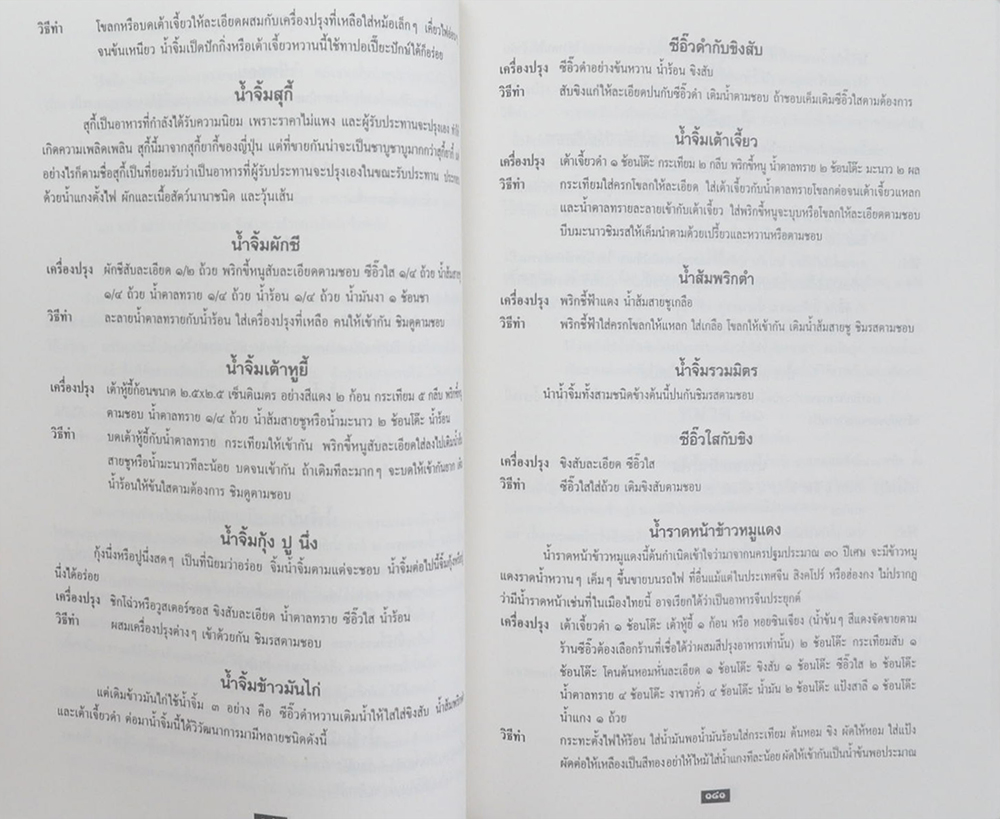 วิธีทำ โขลกหรือบดเต้าเจี้ยวให้ละเอียดผสมกับเครื่องปรุงที่เหลือใส่หม้อเล็กๆ เคี่ยวไฟอ่อน
จนข้นเหนียว น้ำจิ้มเป็ดปักกิ่งหรือเต้าเจี้ยวหวานนี้ใช้ทาปอเปี๊ยะปักษ์ใต้ก็อร่อย
น้ำจิ้มสุกี้
สุกี้เป็นอาหารที่กำลังได้รับความนิยม เพราะราคาไม่แพง และผู้รับประทานจะปรุงเอง
เกิดความเพลิดเพลิน สุกี้นี้มาจากสุกี้ยากี้ของญี่ปุ่น แต่ที่ขายกันน่าจะเป็นชาบูชาบูมากกว่าสุกี้ยากี้
อย่างไรก็ตามชื่อสุกี้เป็นที่ยอมรับว่าเป็นอาหารที่ผู้รับประทานจะปรุงเองในขณะรับประทาน
ด้วยน้ำแกงตั้งไฟ ผักและเนื้อสัตว์นานาชนิด และวุ้นเส้น
น้ำจิ้มผักชี
เครื่องปรุง ผักชีสับละเอียด ๑/๒ ถ้วย พริกขี้หนูสับละเอียดตามชอบ ซีอิ๊วใส ๑/๔ ถ้วย น้ำส้มสายชู
๑/๔ ถ้วย น้ำตาลทราย ๑/๔ ถ้วย น้ำร้อน ๑/๔ ถ้วย น้ำมันงา ๑ ช้อนชา
วิธีทำ ละลายน้ำตาลทรายกับน้ำร้อน ใส่เครื่องปรุงที่เหลือ คนให้เข้ากัน ชิมดูตามชอบ
น้ำจิ้มเต้าหูยี้
เครื่องปรุง เต้าหู้ยี้ก้อนขนาด ๒.๕x๒.๕ เซ็นติเมตร อย่างสีแดง ๒ ก้อน กระเทียม ๕ กลีบ พริกขี้หนู
ตามชอบ น้ำตาลทราย ๑/๔ ถ้วย น้ำส้มสายชูหรือน้ำมะนาว ๒ ช้อนโต๊ะ น้ำร้อน
วิธีทำ บดเต้าหู้ยี้กับน้ำตาลทราย กระเทียมให้เข้ากัน พริกขี้หนูสับละเอียดใส่ลงไปเติมน้ำส้ม
สายชูหรือน้ำมะนาวทีละน้อย บดจนเข้ากัน ถ้าเติมทีละมากๆ จะบดให้เข้ากันยาก
น้ำร้อนให้ข้นใสตามต้องการ ชิมดูตามชอบ
น้ำจิ้มกุ้ง ปู นึ่ง
กุ้งนึ่งหรือปูนึ่งสดๆ เป็นที่นิยมว่าอร่อย จิ้มน้ำจิ้มตามแต่จะชอบ น้ำจิ้มต่อไปนี้จิ้มกุ้งหรือปู
นึ่งได้อร่อย
เครื่องปรุง ซิกโฉ่วหรือวูสเตอร์ซอส ขิงสับละเอียด น้ำตาลทราย ซีอิ๊วใส น้ำร้อน
วิธีทำ ผสมเครื่องปรุงต่างๆ เข้าด้วยกัน ชิมรสตามชอบ
น้ำจิ้มข้าวมันไก่
แต่เดิมข้าวมันไก่ใช้น้ำจิ้ม ๓ อย่าง คือ ซีอิ๊วดำหวานเติมน้ำให้ใสใส่ขิงสับ น้ำส้มพริกตำ
และเต้าเจี้ยวดำ ต่อมาน้ำจิ้มนี้ได้วิวัฒนาการมามีหลายชนิดดังนี้
ซีอิ๊วดำกับขิงสับ
เครื่องปรุง ซีอิ๊วดำอย่างข้นหวาน น้ำร้อน ขิงสับ
วิธีทำ สับขิงแก่ให้ละเอียดปนกับซีอิ๊วดำ เติมน้ำตามชอบ ถ้าชอบเค็มเติมซีอิ๊วใสตามต้องการ
น้ำจิ้มเต้าเจี้ยว
เครื่องปรุง เต้าเจี้ยวดำ ๑ ช้อนโต๊ะ กระเทียม ๒ กลีบ พริกขี้หนู น้ำตาลทราย ๒ ช้อนโต๊ะ มะนาว ๒ ผล
วิธีทำ กระเทียมใส่ครกโขลกให้ละเอียด ใส่เต้าเจี้ยวกับน้ำตาลทรายโขลกต่อจนเต้าเจี้ยวแหลก
และน้ำตาลทรายละลายเข้ากับเต้าเจี้ยว ใส่พริกขี้หนูจะบุบหรือโขลกให้ละเอียดตามชอบ
บีบมะนาวชิมรสให้เค็มนำตามด้วยเปรี้ยวและหวานหรือตามชอบ
น้ำส้มพริกตำ
เครื่องปรุง พริกชี้ฟ้าแดง น้ำส้มสายชูเกลือ
วิธีทำ พริกชี้ฟ้าใส่ครกโขลกให้แหลก ใส่เกลือ โขลกให้เข้ากัน เติมน้ำส้มสายชู ชิมรสตามชอบ
น้ำจิ้มรวมมิตร
นำน้ำจิ้มทั้งสามชนิดข้างต้นนี้ปนกันชิมรสตามชอบ
ซีอิ๊วใสกับขิง
เครื่องปรุง ขิงสับละเอียด ซีอิ๊วใส
วิธีทำ ซีอิ๊วใสใส่ถ้วย เติมขิงสับตามชอบ
น้ำราดหน้าข้าวหมูแดง
น้ำราดหน้าข้าวหมูแดงนี้ต้นกำเนิดเข้าใจว่ามาจากนครปฐมประมาณ ๓๐ ปีเศษ จะมีข้าวหมู
แดงราดน้ำหวานๆ เค็มๆ ขึ้นขายบนรถไฟ ที่อื่นแม้แต่ในประเทศจีน สิงคโปร์ หรือฮ่องกง ไม่ปรากฏ
ว่ามีน้ำราดหน้าเช่นที่ในเมืองไทยนี้ อาจเรียกได้ว่าเป็นอาหารจีนประยุกต์
เครื่องปรุง เต้าเจี้ยวดำ ๑ ช้อนโต๊ะ เต้าหู้ยี้ ๑ ก้อน หรือ หอยซินเจียง (น้ำข้นๆ สีแดงจัดขายตาม
ร้านซีอิ๊วต้องเลือกร้านที่เชื่อได้ว่าผสมสีปรุงอาหารเท่านั้น) ๒ ช้อนโต๊ะ กระเทียมสับ ๑
ช้อนโต๊ะ โคนต้นหอมหั่นละเอียด ๑ ช้อนโต๊ะ ขิงสับ ๑ ช้อนโต๊ะ ซีอิ๊วใส ๒ ช้อนโต๊ะ
น้ำตาลทราย ๔ ช้อนโต๊ะ งาขาวคั่ว ๔ ช้อนโต๊ะ น้ำมัน ๒ ช้อนโต๊ะ แป้งสาลี ๑ ช้อนโต๊ะ
น้ำแกง ๑ ถ้วย
วิธีทำ กระทะตั้งไฟให้ร้อน ใส่น้ำมันพอน้ำมันร้อนใส่กระเทียม ต้นหอม ขิง ผัดให้หอม ใส่แป้ง
ผัดต่อให้เหลืองเป็นสีทองอย่าให้ไหม้ใส่น้ำแกงทีละน้อย ผัดให้เข้ากันเป็นน้ำข้นพอประมาณ
๑๔๑